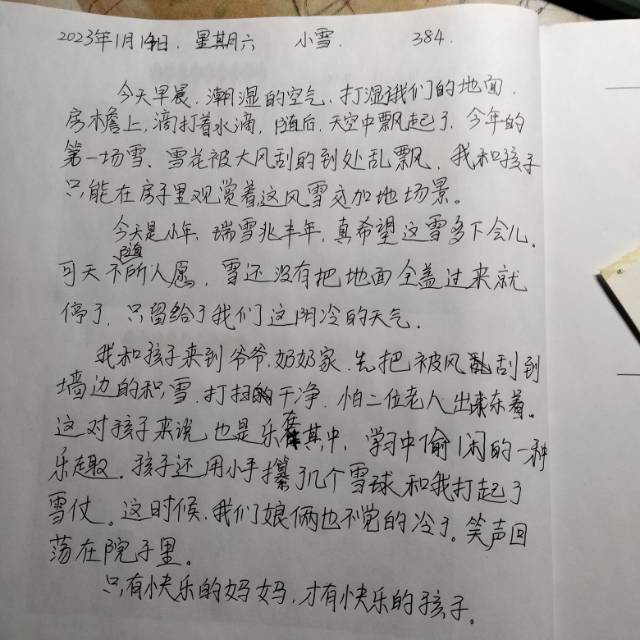 2023年1月14日. 星期六 小雪. 384.
今天早晨, 潮湿的空气, 打湿我们的地面,
房檐上, 滴打着水滴, 随后, 天空中飘起了, 今年的
第一场雪. 雪花被大风刮的到处乱飘, 我和孩子
只能在房子里观赏着这风雪交加地场景。
今天是小年, 瑞雪兆丰年, 真希望这雪多下会儿.
可天不随所人愿, 雪还没有把地面全盖过来就
停了, 只留给了我们这阴冷的天气.
我和孩子来到爷爷.奶奶家, 先把被风刮到
墙边的积雪, 打扫的干净, 怕二位老人出来冻着。
这对孩子来说也是乐在其中, 学习中偷闲的一种
乐趣. 孩子还用小手攥了几个雪球和我打起了
雪仗。这时候, 我们娘俩也不觉的冷了。笑声回
荡在院子里。
只有快乐的妈妈, 才有快乐的孩子。